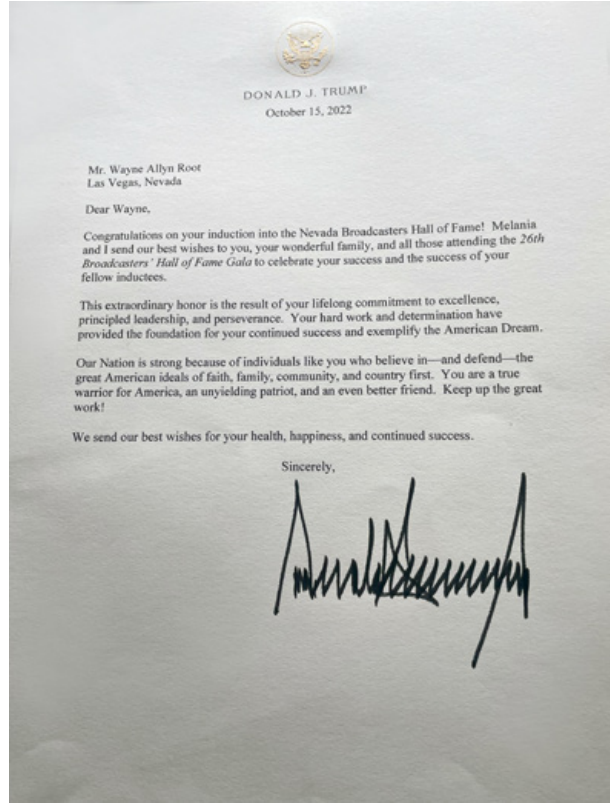 DONALD J. TRUMP
October 15, 2022
Mr. Wayne Allyn Root
Las Vegas, Nevada
Dear Wayne,
Congratulations on your induction into the Nevada Broadcasters Hall of Fame!  Melania
and I send our best wishes to you, your wonderful family, and all those attending the 26th
Broadcasters' Hall of Fame Gala to celebrate your success and the success of your
fellow inductees.
This extraordinary honor is the result of your lifelong commitment to excellence,
principled leadership, and perseverance.  Your hard work and determination have
provided the foundation for your continued success and exemplify the American Dream.
Our Nation is strong because of individuals like you who believe in—and defend—the
great American ideals of faith, family, community, and country first.  You are a true
warrior for America, an unyielding patriot, and an even better friend.  Keep up the great
work!
We send our best wishes for your health, happiness, and continued success.
Sincerely,